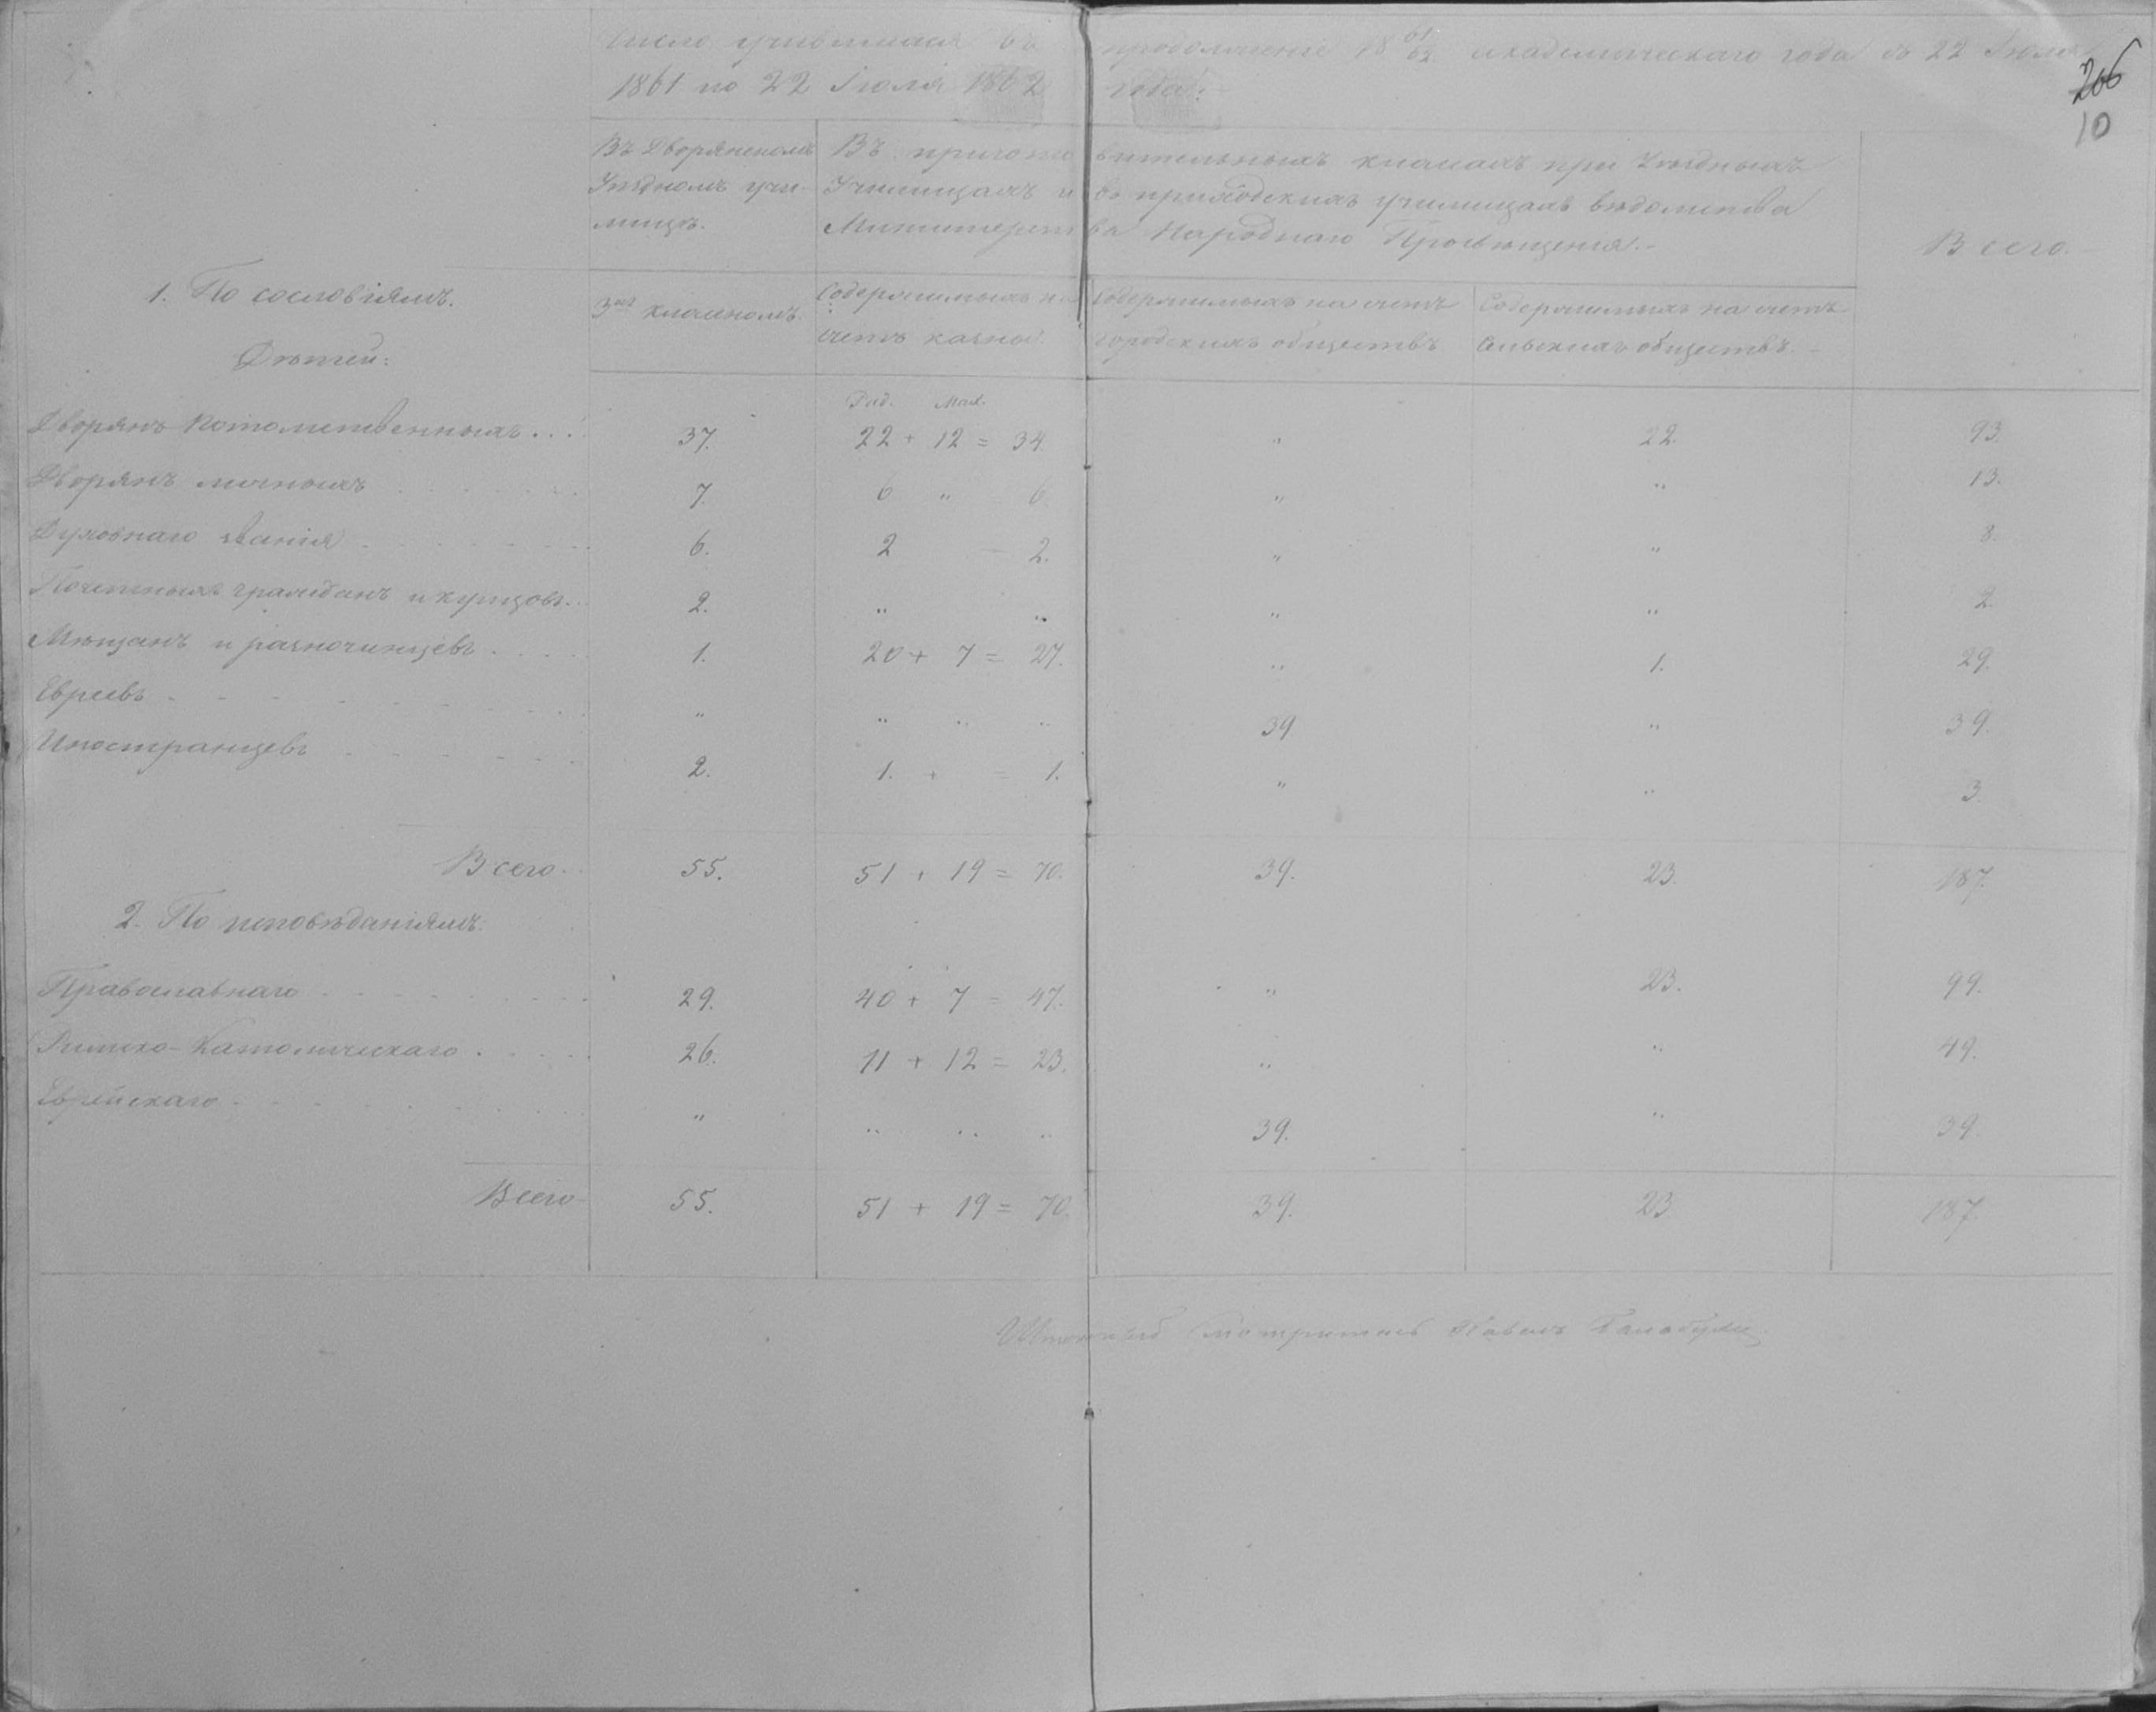 Число учившихся въ продолженіе 18 61/62 академическаго года съ 22 Іюля
1861 по 22 Іюля 1862 года.
206
10
Въ Дворянскомъ
Уѣздномъ учи-
лищѣ.
Въ приготовительныхъ классахъ при Уѣздныхъ
Училищахъ и въ приходскихъ училищахъ вѣдомства
Министерства Народнаго Просвѣщенія.
Всего.
1. По сословіямъ.
Дѣтей:
3хъ классномъ.
Содержимыхъ на
счетъ казны.
Содержимыхъ на счетъ
городскихъ обществъ
Содержимыхъ на счетъ
сельскихъ обществъ.
Рад. Мал.
Дворянъ потомственныхъ... 37. 22 + 12 = 34. " 22. 93.
Дворянъ личныхъ 7. 6 " 6 " " 13.
Духовнаго званія 6. 2 - 2. " " 8.
Почетныхъ гражданъ и купцовъ... 2. " " " " 2.
Мѣщанъ и разночинцевъ 1. 20 + 7 = 27. " 1. 29.
Евреевъ " " " " 39 " 39.
Иностранцевъ 2. 1. + = 1. " " 3.
Всего 55. 51 + 19 = 70. 39. 23. 187.
2. По исповѣданіямъ:
Православнаго 29. 40 + 7 = 47. " 23. 99.
Римско-Католическаго 26. 11 + 12 = 23. " " 49.
Еврейскаго " " " " 39. " 39.
Всего 55. 51 + 19 = 70. 39. 23. 187.
Штатный Смотритель Павелъ